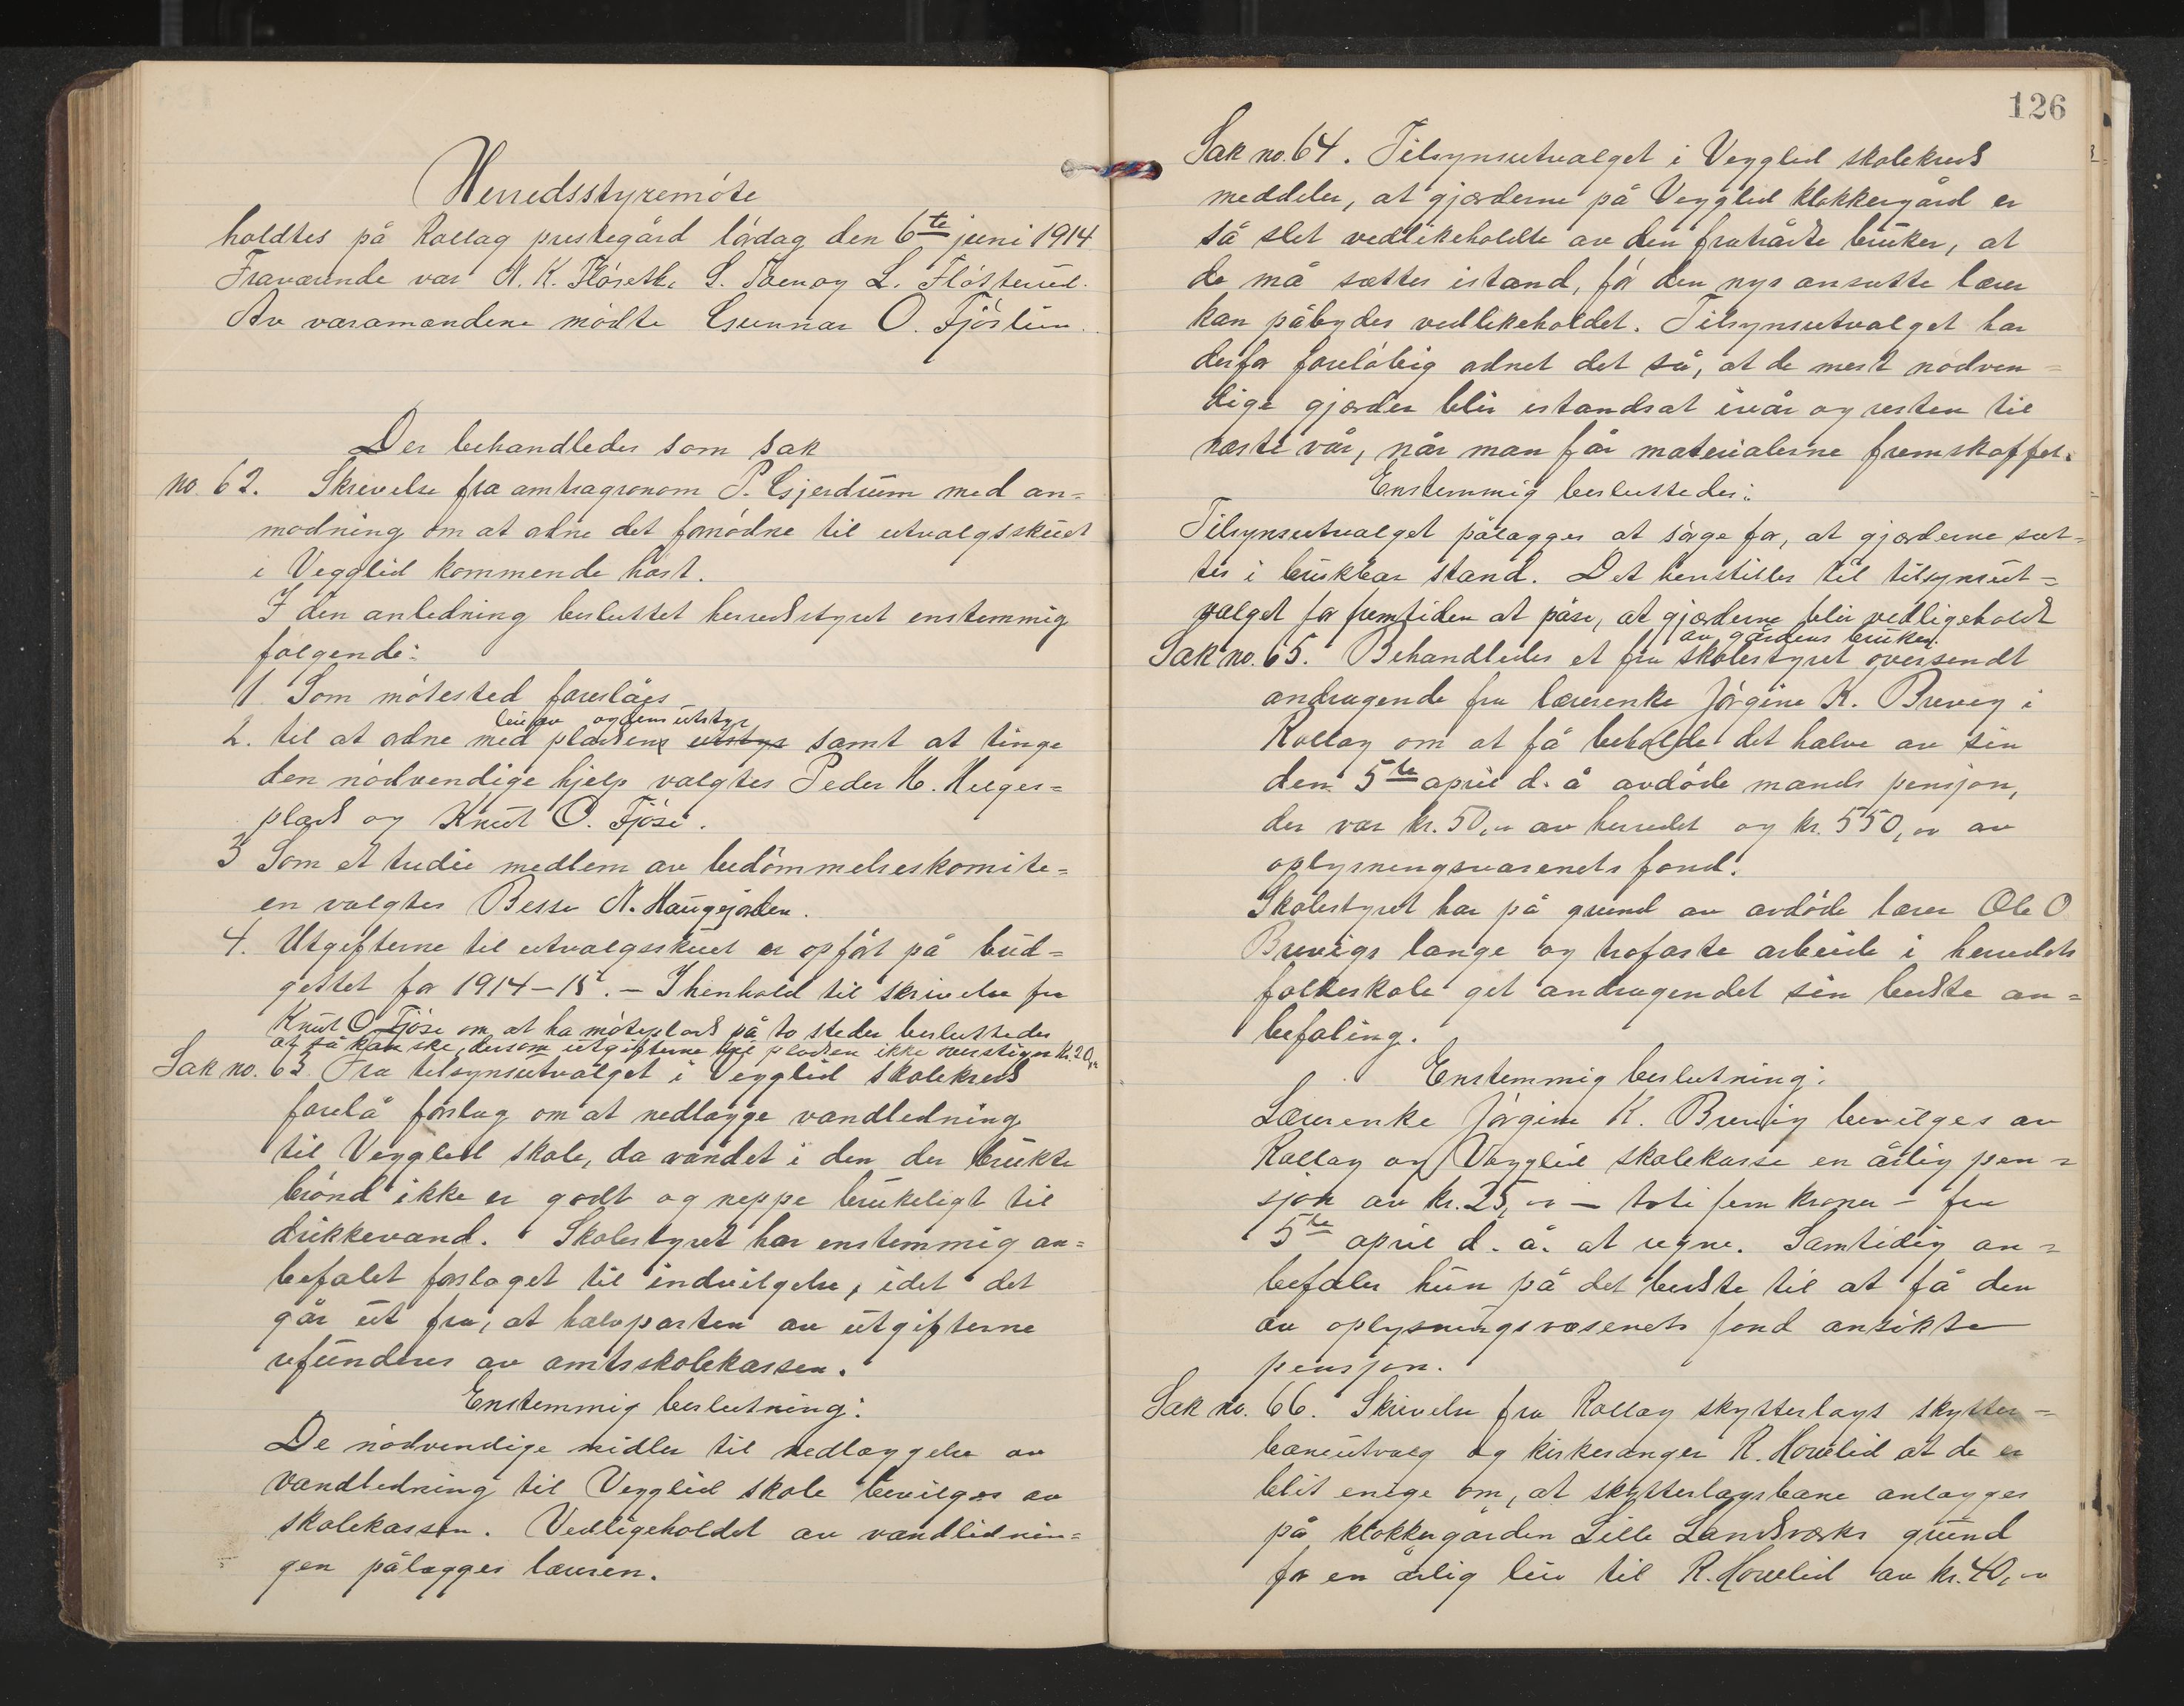 Herredsstyremöte
holdtes på Rollag prestegård lördag den 6te juni 1914
Fraværende var N. K. Flöseth, S. Toen og L. Flösterud.
Av varamændene mödte Gunnar O. Fjöslien.
Der behandledes som sak
no. 62. Skrivelse fra amtsagronom P. Gjerdrum med an=
modning om at odne det fornödne til utvalgsskuet
i Vegglid kommende höst.
I den anledning besluttet herredsstyret enstemmig
fölgende:
1 Som mötested foreslåes
leie av og dens utstyr
2. til at odne med pladsens utstyr samt at tinge
den nödvendige hjelp valgtes Peder H. Helges=
plads og Knut O. Fjöse.
3 Som et tredie medlem av bedömmelseskomite=
en valgtes Besse N. Haugejorden.
4. Utgifterne til utvalgsskuet er opfört på bud=
gettet for 1914–15. – I henhold til skrivelse fra
Knut O. Fjöse om at ha möteplads på to steder besluttedes
at så kan ske, dersom utgifterne til pladsen ikke overstiger kr. 20,00
Sak no. 63 Fra tilsynsutvalget i Vegglid skolekreds
forelå forslag om at nedlægge vandledning
til Vegglid skole, da vandet i den der brukte
brönd ikke er godt og neppe brukeligt til
drikkevand. Skolestyret har enstemmig an=
befalet forslaget til indvilgelse, idet det
går ut fra, at halvparten av utgifterne
refunderes av amtsskolekassen.
Enstemmig beslutning:
De nödvendige midler til nedlæggelse av
vandledning til Vegglid skole bevilges av
skolekassen. Vedligeholdet av vandlednin=
gen pålægges læreren.
126
Sak no. 64. Tilsynsutvalget i Vegglid skolekreds
meddeler, at gjærderne på Vegglid klokkergård er
så slet vedlikeholdte av den fratrådte bruker, at
de må sættes istand, för den nys ansatte lærer
kan påbydes vedlikeholdet. Tilsynsutvalget har
derfor forelöbig odnet det så, at de mest nödven=
dige gjærder blir istandsat ivår og resten til
næste vår, når man får materialerne fremskaffet.
Enstemmig besluttedes:
Tilsynsutvalget pålægges at sörge for, at gjærderne sæt=
tes i brukbar stand. Det henstilles til tilsynsut=
valget for fremtiden at påse, at gjærderne blir vedligeholdt
av gårdens bruker.
Sak no. 65. Behandledes et fra skolestyret oversendt
andragende fra lærerenke Jörgine K. Brevig i
Rollag om at få beholde det halve av sin
den 5te april d. å avdöde mands pensjon,
der var kr. 50,00 av herredet og kr. 550,00 av
oplysningsvæsenets fond.
Skolestyret har på grund av avdöde lærer Ole O
Brevigs lange og trofaste arbeide i herredets
folkeskole get andragendet sin bedste an=
befaling.
Enstemmig beslutning:
Lærerenke Jörgine K. Brevig bevilges av
Rollag og Vegglid skolekasse en årlig pen=
sjon av kr. 25,00 – toti fem kroner – fra
5te april d. å. at regne. Samtidig an=
befales hun på det bedste til at få den
av oplysningsvæsenets fond ansökte
pensjon.
Sak no. 66. Skrivelse fra Rollag skytterlags skytter=
baneutvalg og kirkesanger R. Hovelid at de er
blit enige om, at skytterlagsbane anlægges
på klokkergården Lille Landsværks grund
for en årlig leie til R. Hovelid av kr. 40,00